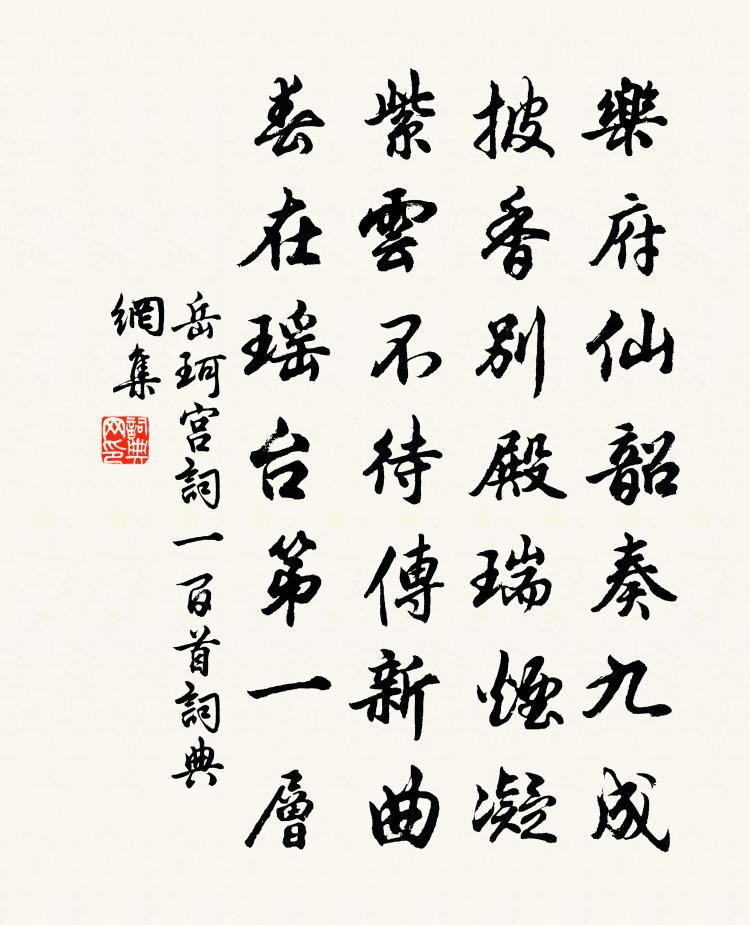 樂府仙韶奏九成
披香別殿瑞煙凝
紫雲不待傳新曲
春在瑤台第一層
岳珂宮詞一百首詞典
網集
詞典網印